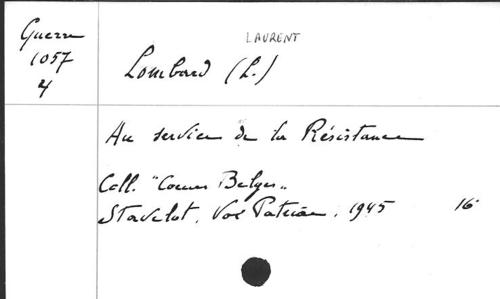 Guerre
1057
4
LAURENT
Lombard (L.)
Au service de la Résistance
Coll. "Coeurs Belges„
Stavelot, Vox Patriae, 1945 16°